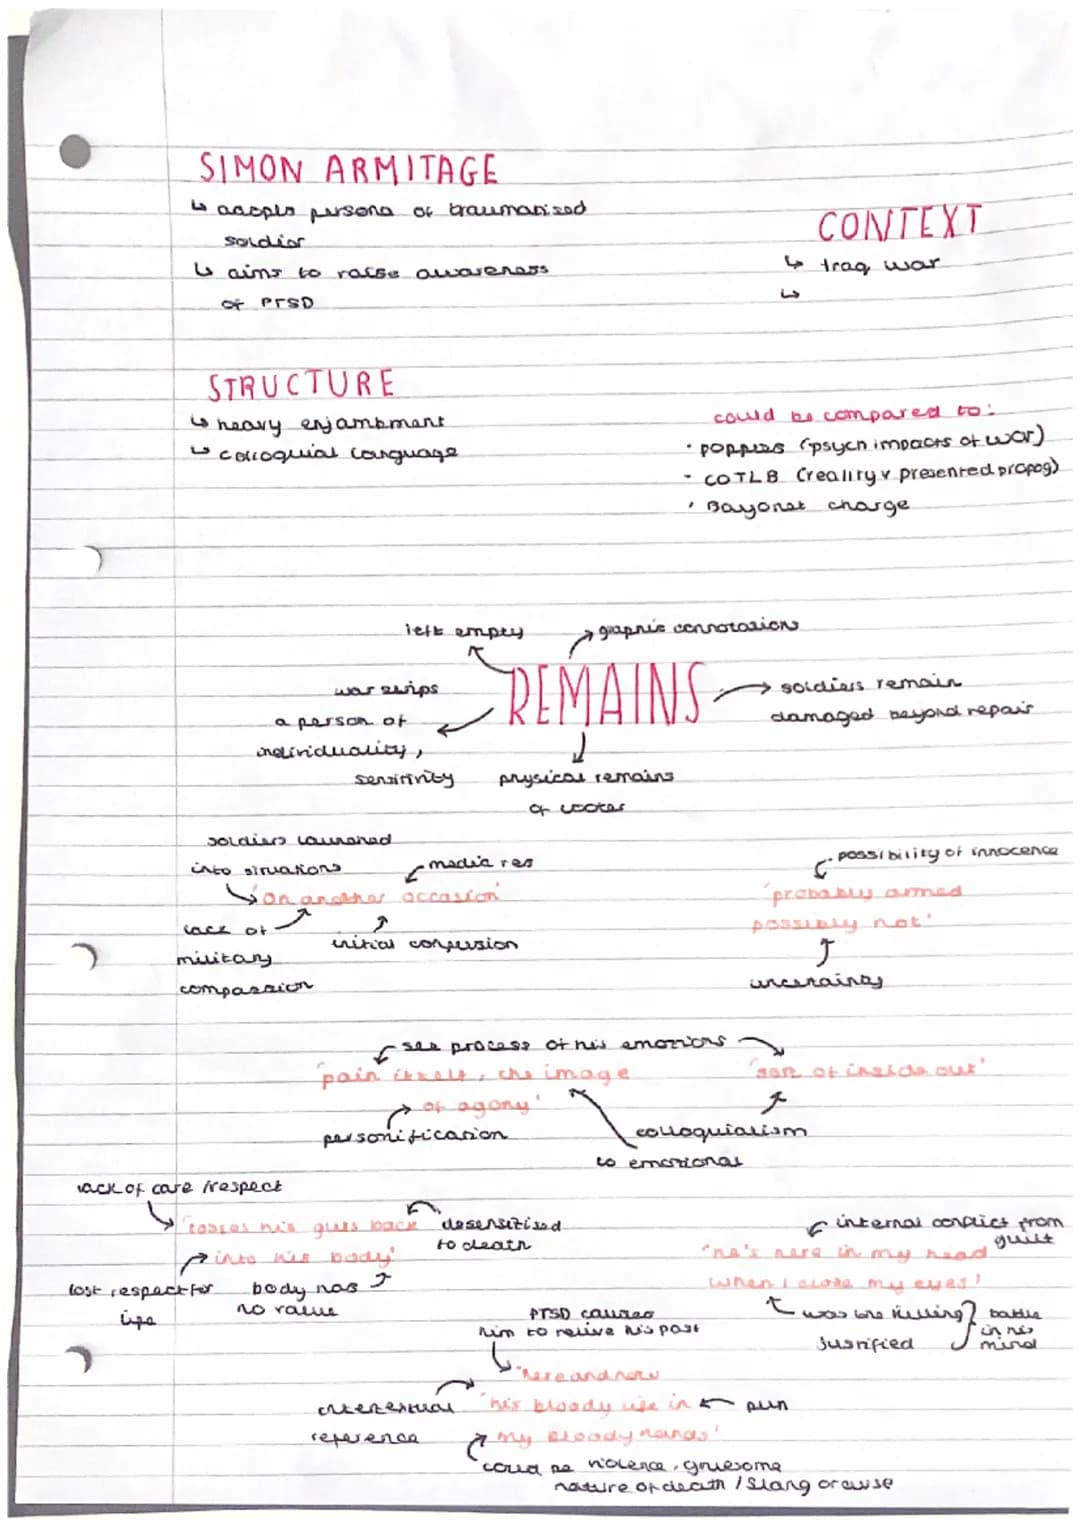 SIMON ARMITAGE
↳ adopts persona of traumatised
soldier
↳ aims to raise awareness
of PTSD
CONTEXT
↳ Iraq war
↳
STRUCTURE
↳ heavy enjambment
↳ colloquial language
could be compared to:
· POPPIES (psych impacts of war)
· COTLB (reality v presented propog)
· Bayonet charge
left empty
graphic connotations
REMAINS
war strips
a person of
individuality,
sensitivity
soldiers remain
damaged beyond repair
physical remains
of looter
soldiers launched
into situations
media res
'on another occasion'
lack of
military
compassion
initial confusion
possibility of innocence
'probably armed
possibly not'
uncertainty
see process of his emotions
'pain itself, the image
of agony'
'sort of inside out'
personification
colloquialism
to emotional
lack of care / respect
'tosses his guts back
into his body'
desensitised
to death
lost respect for
life
body has
no value
internal conflict from
guilt
'he's here in my head
when I close my eyes'
was the killing?
justified
battle
in his
mind
PTSD causes
him to relive his past
'here and now
'his bloody life in
my bloody hands'
intertextual
reference
pun
could be violence, gruesome
nature of death / slang or curse